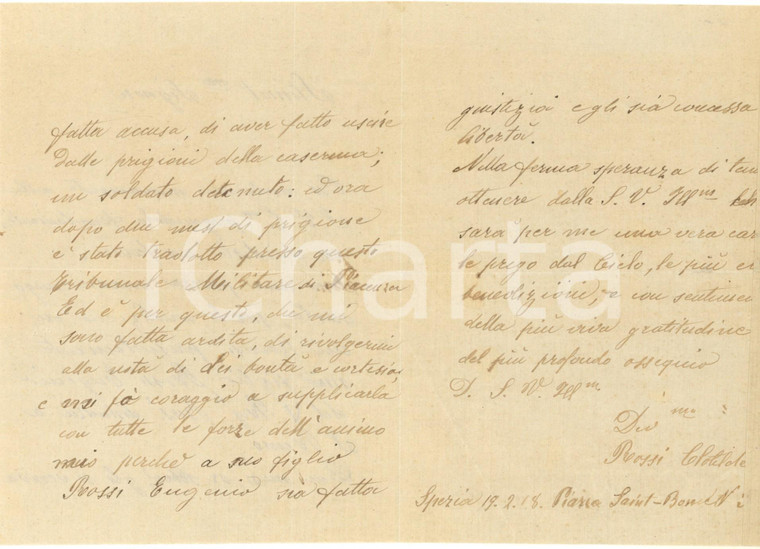 fatta accusa, di aver fatto uscire
dalle prigioni della caserma,
un soldato detenuto: ed ora
dopo due mesi di prigione
è stato tradotto presso questo
Tribunale Militare di Piacenza
Ed è per questo, che mi
sono fatta ardita, di rivolgermi
alla nota di Lei bontà e cortesia,
e mi fò coraggio a supplicarla
con tutte le forze dell'animo
mio perchè a mio figlio
Rossi Eugenio sia fatta
giustizia e gli sia concessa
libertà.
Nella ferma speranza di
ottenere dalla S. V. Ill^ma
sarà per me una vera
le prego dal Cielo, le più
benedizioni, e con
della più viva gratitudine
del più profondo ossequio
D. S. V. Ill^ma
Dev^ma
Rossi Clotilde
Spezia 19.2.18. Piazza Saint-Bon N
iCharta